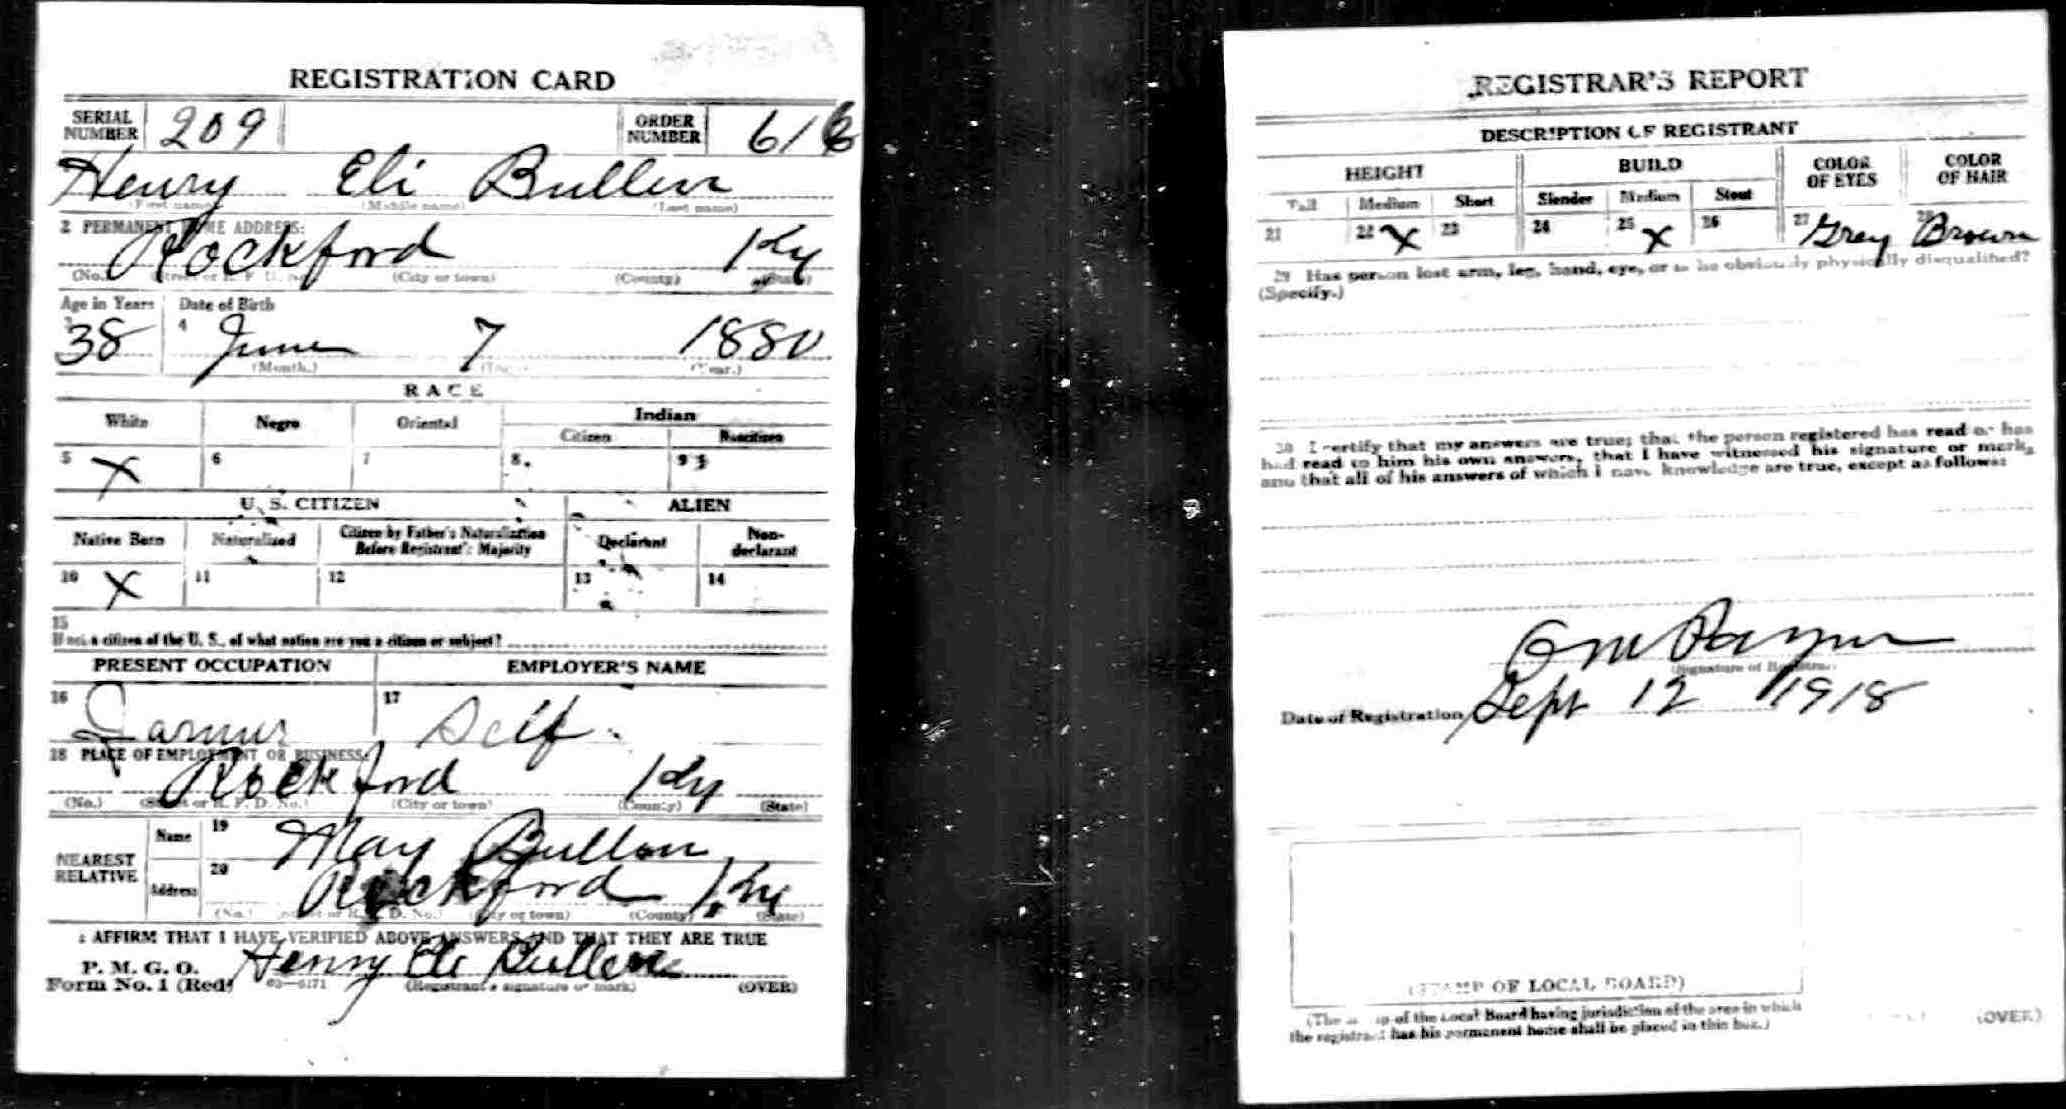 REGISTRATION CARD
SERIAL NUMBER 209 ORDER NUMBER 616
Henry Eli Bullen
(First name) (Middle name) (Last name)
2 PERMANENT HOME ADDRESS:
Rockford Ky
(No.) (Street or R. F. D. No.) (City or town) (County) (State)
Age in Years Date of Birth
3 38 4 June 7 1880
(Month.) (Year.)
RACE
White Negro Oriental Indian
Citizen Noncitizen
5 X 6 7 8 9
U. S. CITIZEN ALIEN
Native Born Naturalized Citizen by Father's Naturalization Before Registrant's Majority Declarant Non-declarant
10 X 11 12 13 14
15
If not a citizen of the U. S., of what nation are you a citizen or subject?
PRESENT OCCUPATION EMPLOYER'S NAME
16 Farmer 17 Self
18 PLACE OF EMPLOYMENT OR BUSINESS:
Rockford Ky
(No.) (Street or R. F. D. No.) (City or town) (County) (State)
NEAREST RELATIVE Name 19 May Bullen
Address 20 Rockford Ky
(No.) (Street or R. F. D. No.) (City or town) (County) (State)
I AFFIRM THAT I HAVE VERIFIED ABOVE ANSWERS AND THAT THEY ARE TRUE
P. M. G. O.
Form No. 1 (Red) 03—6171 Henry Eli Bullen
(Registrant's signature or mark) (OVER)
REGISTRAR'S REPORT
DESCRIPTION OF REGISTRANT
HEIGHT BUILD COLOR OF EYES COLOR OF HAIR
Tall Medium Short Slender Medium Stout
21 22 X 23 24 25 X 26 27 Grey 28 Brown
29 Has person lost arm, leg, hand, eye, or is he obviously physically disqualified?
(Specify.)
30 I certify that my answers are true; that the person registered has read or has
had read to him his own answers, that I have witnessed his signature or mark,
and that all of his answers of which I have knowledge are true, except as follows:
(Signature of Registrar)
Date of Registration Sept 12 1918
(STAMP OF LOCAL BOARD)
(The stamp of the Local Board having jurisdiction of the area in which
the registrant has his permanent home shall be placed in this box.)
(OVER)